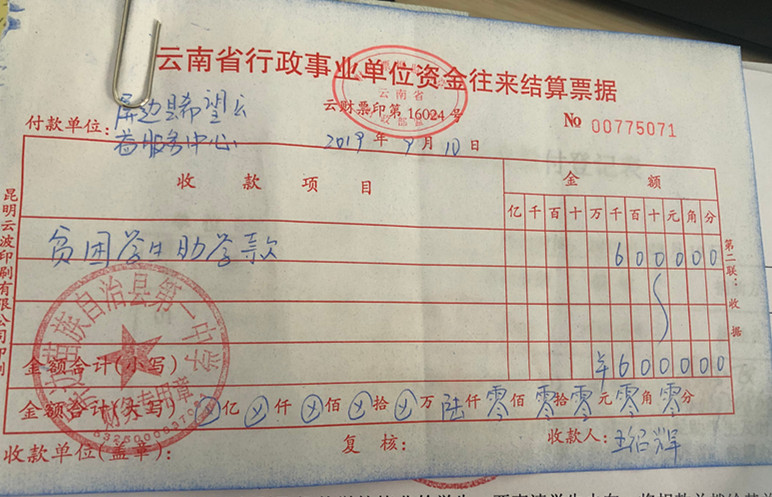 云南省行政事业单位资金往来结算票据
云财票印第 16024 号
付款单位: 屏边县希望云
服务中心
2019 年 9 月 10 日
№ 00775071
收款项目 金额
亿 千 百 十 万 千 百 十 元 角 分
贫困学生助学款 6 0 0 0 0 0
金额合计(小写) ¥ 6 0 0 0 0 0
金额合计(大写) ⊗ 亿 ⊗ 仟 ⊗ 佰 ⊗ 拾 ⊗ 万 陆 仟 零 佰 零 拾 零 元 零 角 零 分
收款单位(盖章): 复核: 收款人:
昆明云波印刷有限公司印制
第二联:收据
云南省
苗族自治县第一中学
财务专用章